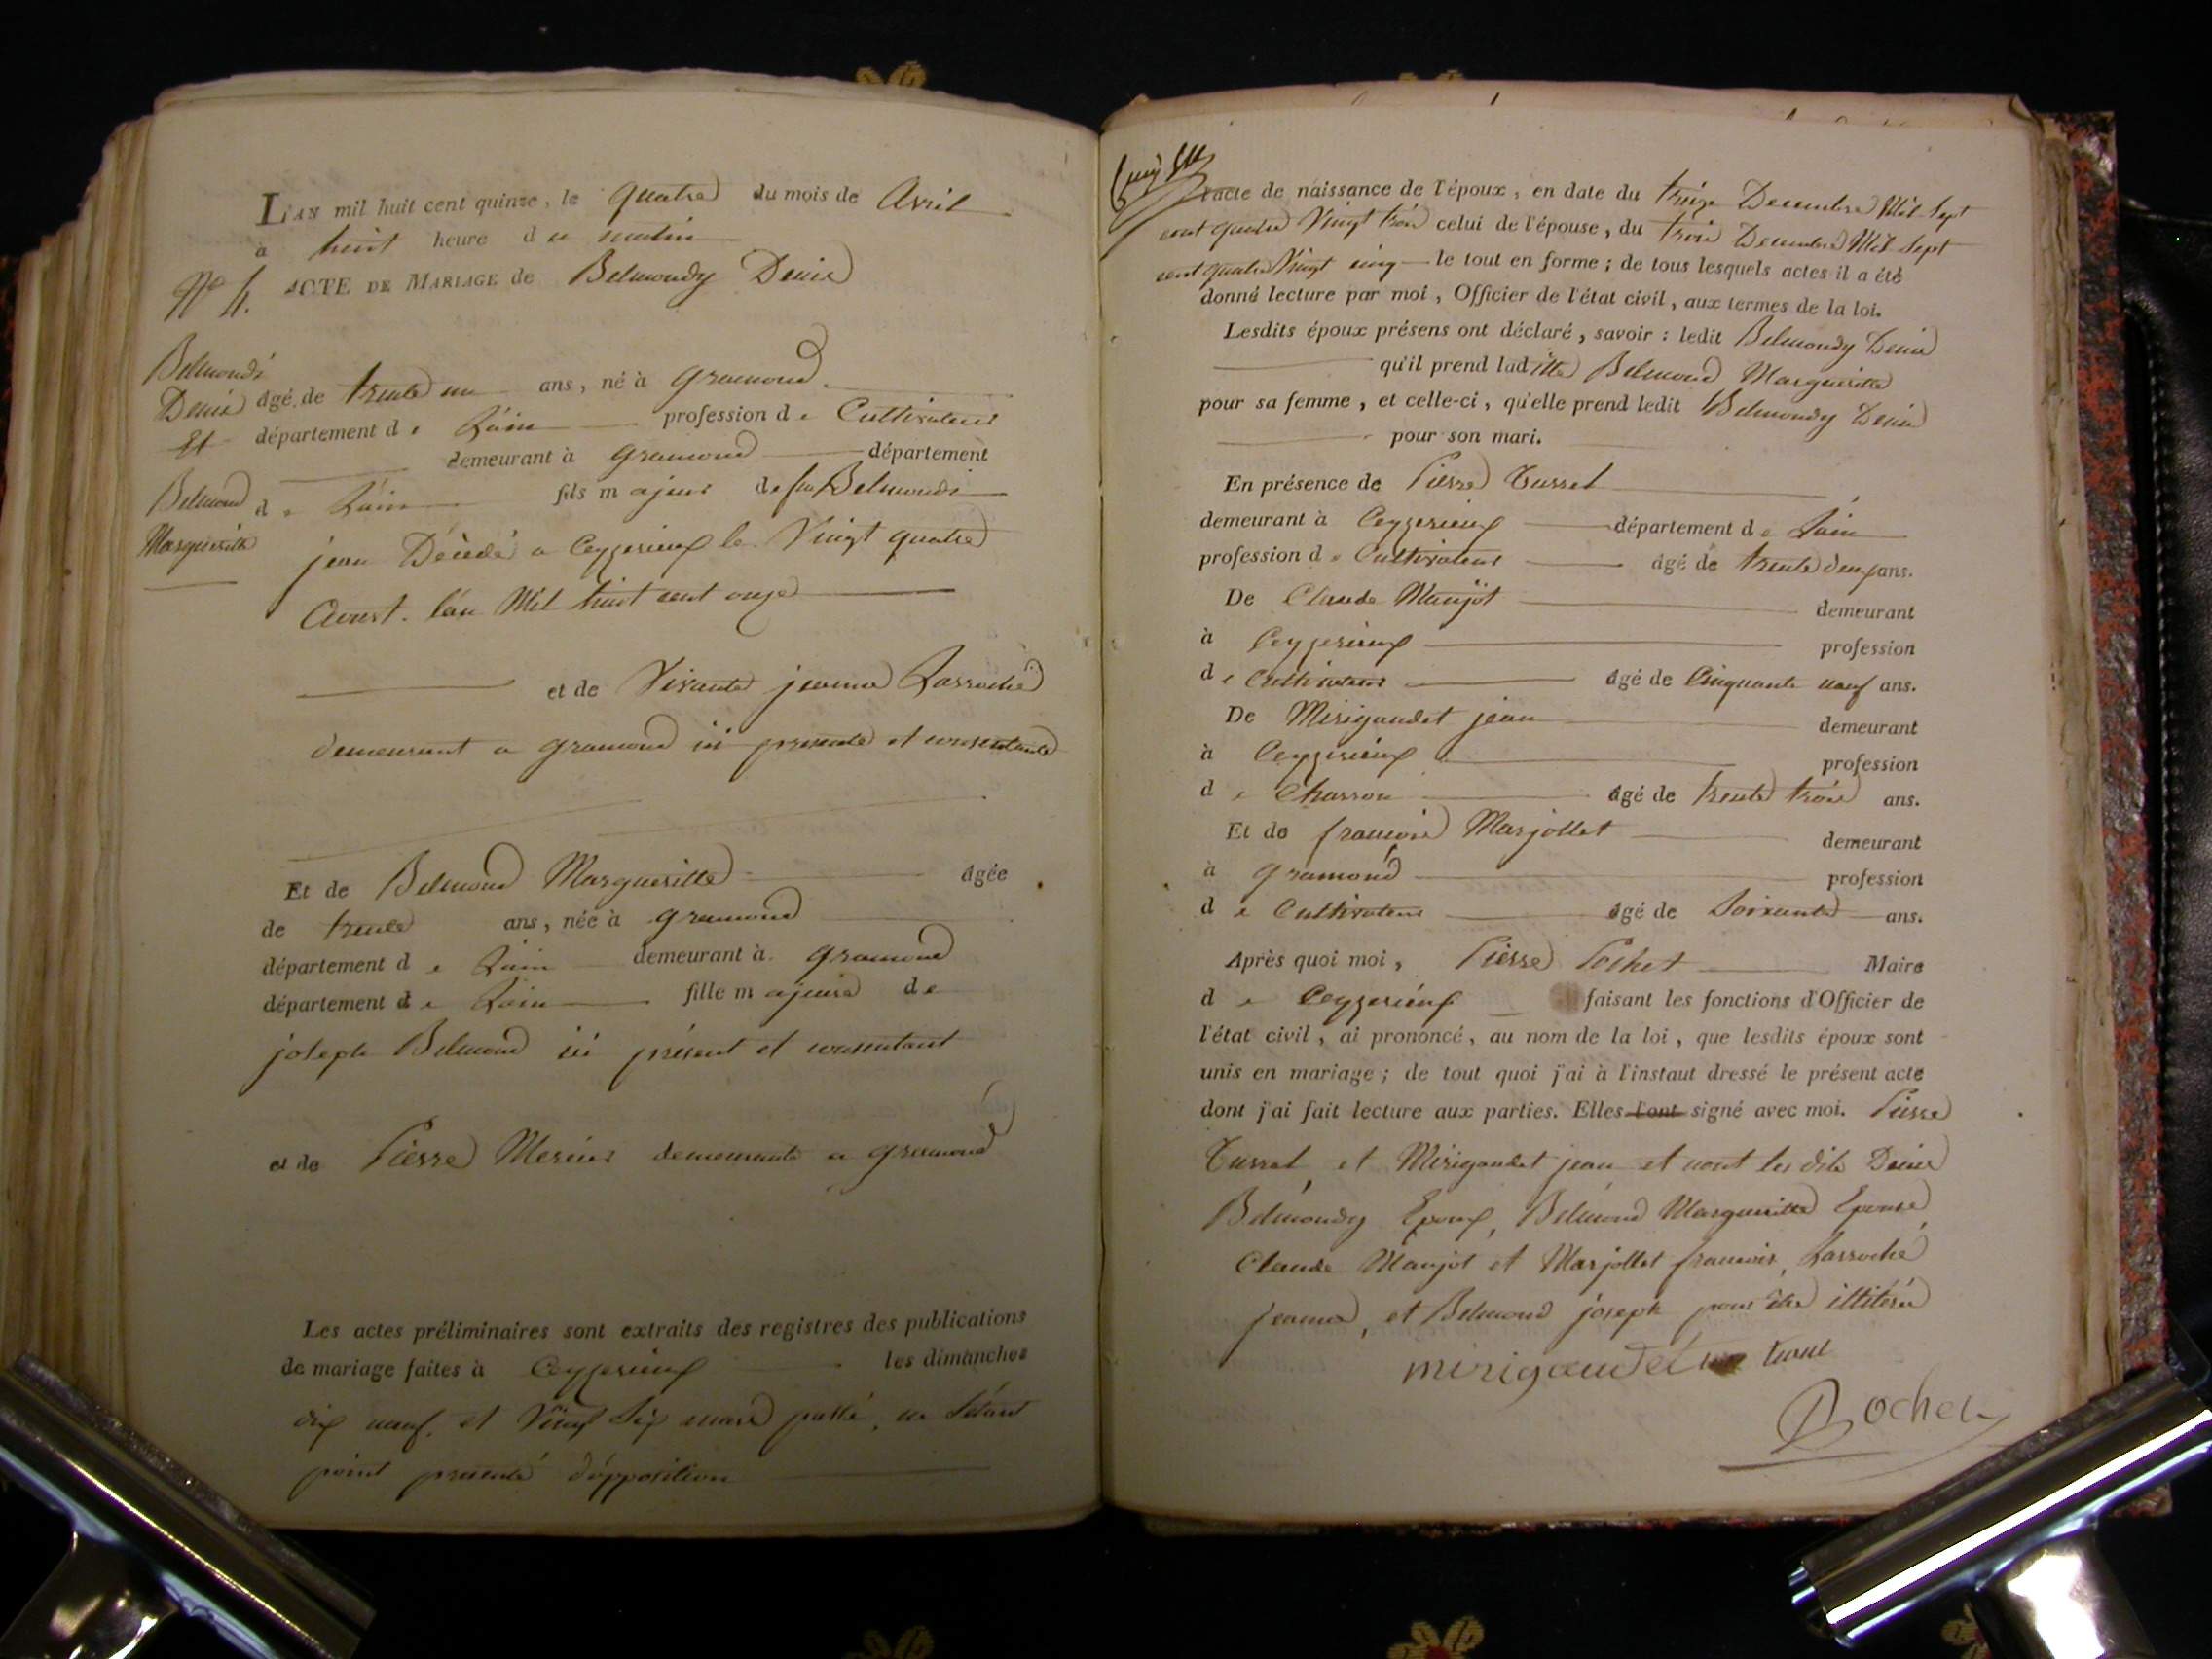 L'AN mil huit cent quinze, le quatre du mois de Avril
à huit heure du matin
N° 4. ACTE DE MARIAGE de Belmondy Denis
Belmondi
Denis
Et
Belmond
Margueritte
âgé de trente un ans, né à gramond
département de Lain profession de Cultivateur
demeurant à gramond département
de Lain fils majeur de feu Belmondi
jean Décédé a Ceyzerieux le Vingt quatre
Aoust. l'an Mil huit cent onze
et de Vivante jeanne Larroche
demeurant a gramond ici presente et consentante
Et de Belmond Margueritte âgée
de trente ans, née à gramond
département de Lain demeurant à gramond
département de Lain fille majeure de
joseph Belmond ici présent et consentant
et de Pierre Mercier demeurante a gramond
Les actes préliminaires sont extraits des registres des publications
de mariage faites à Ceyzerieux les dimanches
dix neuf, et Vingt Six mars passé, ne s'étant
point presenté d'opposition
l'acte de naissance de l'époux, en date du treize Decembre Mil Sept
cent quatre Vingt trois celui de l'épouse, du trois Decembre Mil Sept
cent quatre Vingt cinq le tout en forme ; de tous lesquels actes il a été
donné lecture par moi, Officier de l'état civil, aux termes de la loi.
Lesdits époux présens ont déclaré, savoir : ledit Belmondy Denis
qu'il prend laditte Belmond Margueritte
pour sa femme, et celle-ci, qu'elle prend ledit Belmondy Denis
pour son mari.
En présence de Pierre Tussel
demeurant à Ceyzerieux département de Lain
profession de Cultivateur âgé de trente deux ans.
De Claude Maujot demeurant
à Ceyzerieux profession
de Cultivateur âgé de Cinquante neuf ans.
De Mirigaudet jean demeurant
à Ceyzerieux profession
de Charron âgé de trente trois ans.
Et de francois Marjollet demeurant
à gramond profession
de Cultivateur âgé de Soixante ans.
Après quoi moi, Pierre Pochet Maire
de Ceyzerieux faisant les fonctions d'Officier de
l'état civil, ai prononcé, au nom de la loi, que lesdits époux sont
unis en mariage ; de tout quoi j'ai à l'instant dressé le présent acte
dont j'ai fait lecture aux parties. Elles l'ont signé avec moi. Pierre
Tussel, et Mirigaudet jean et nont les dits Denis
Belmondy Epoux, Belmond Margueritte Epouse,
Claude Maujot et Marjollet francois, Larroche
jeanne, et Belmond joseph pour être illitéré
mirigaudet
Pochet